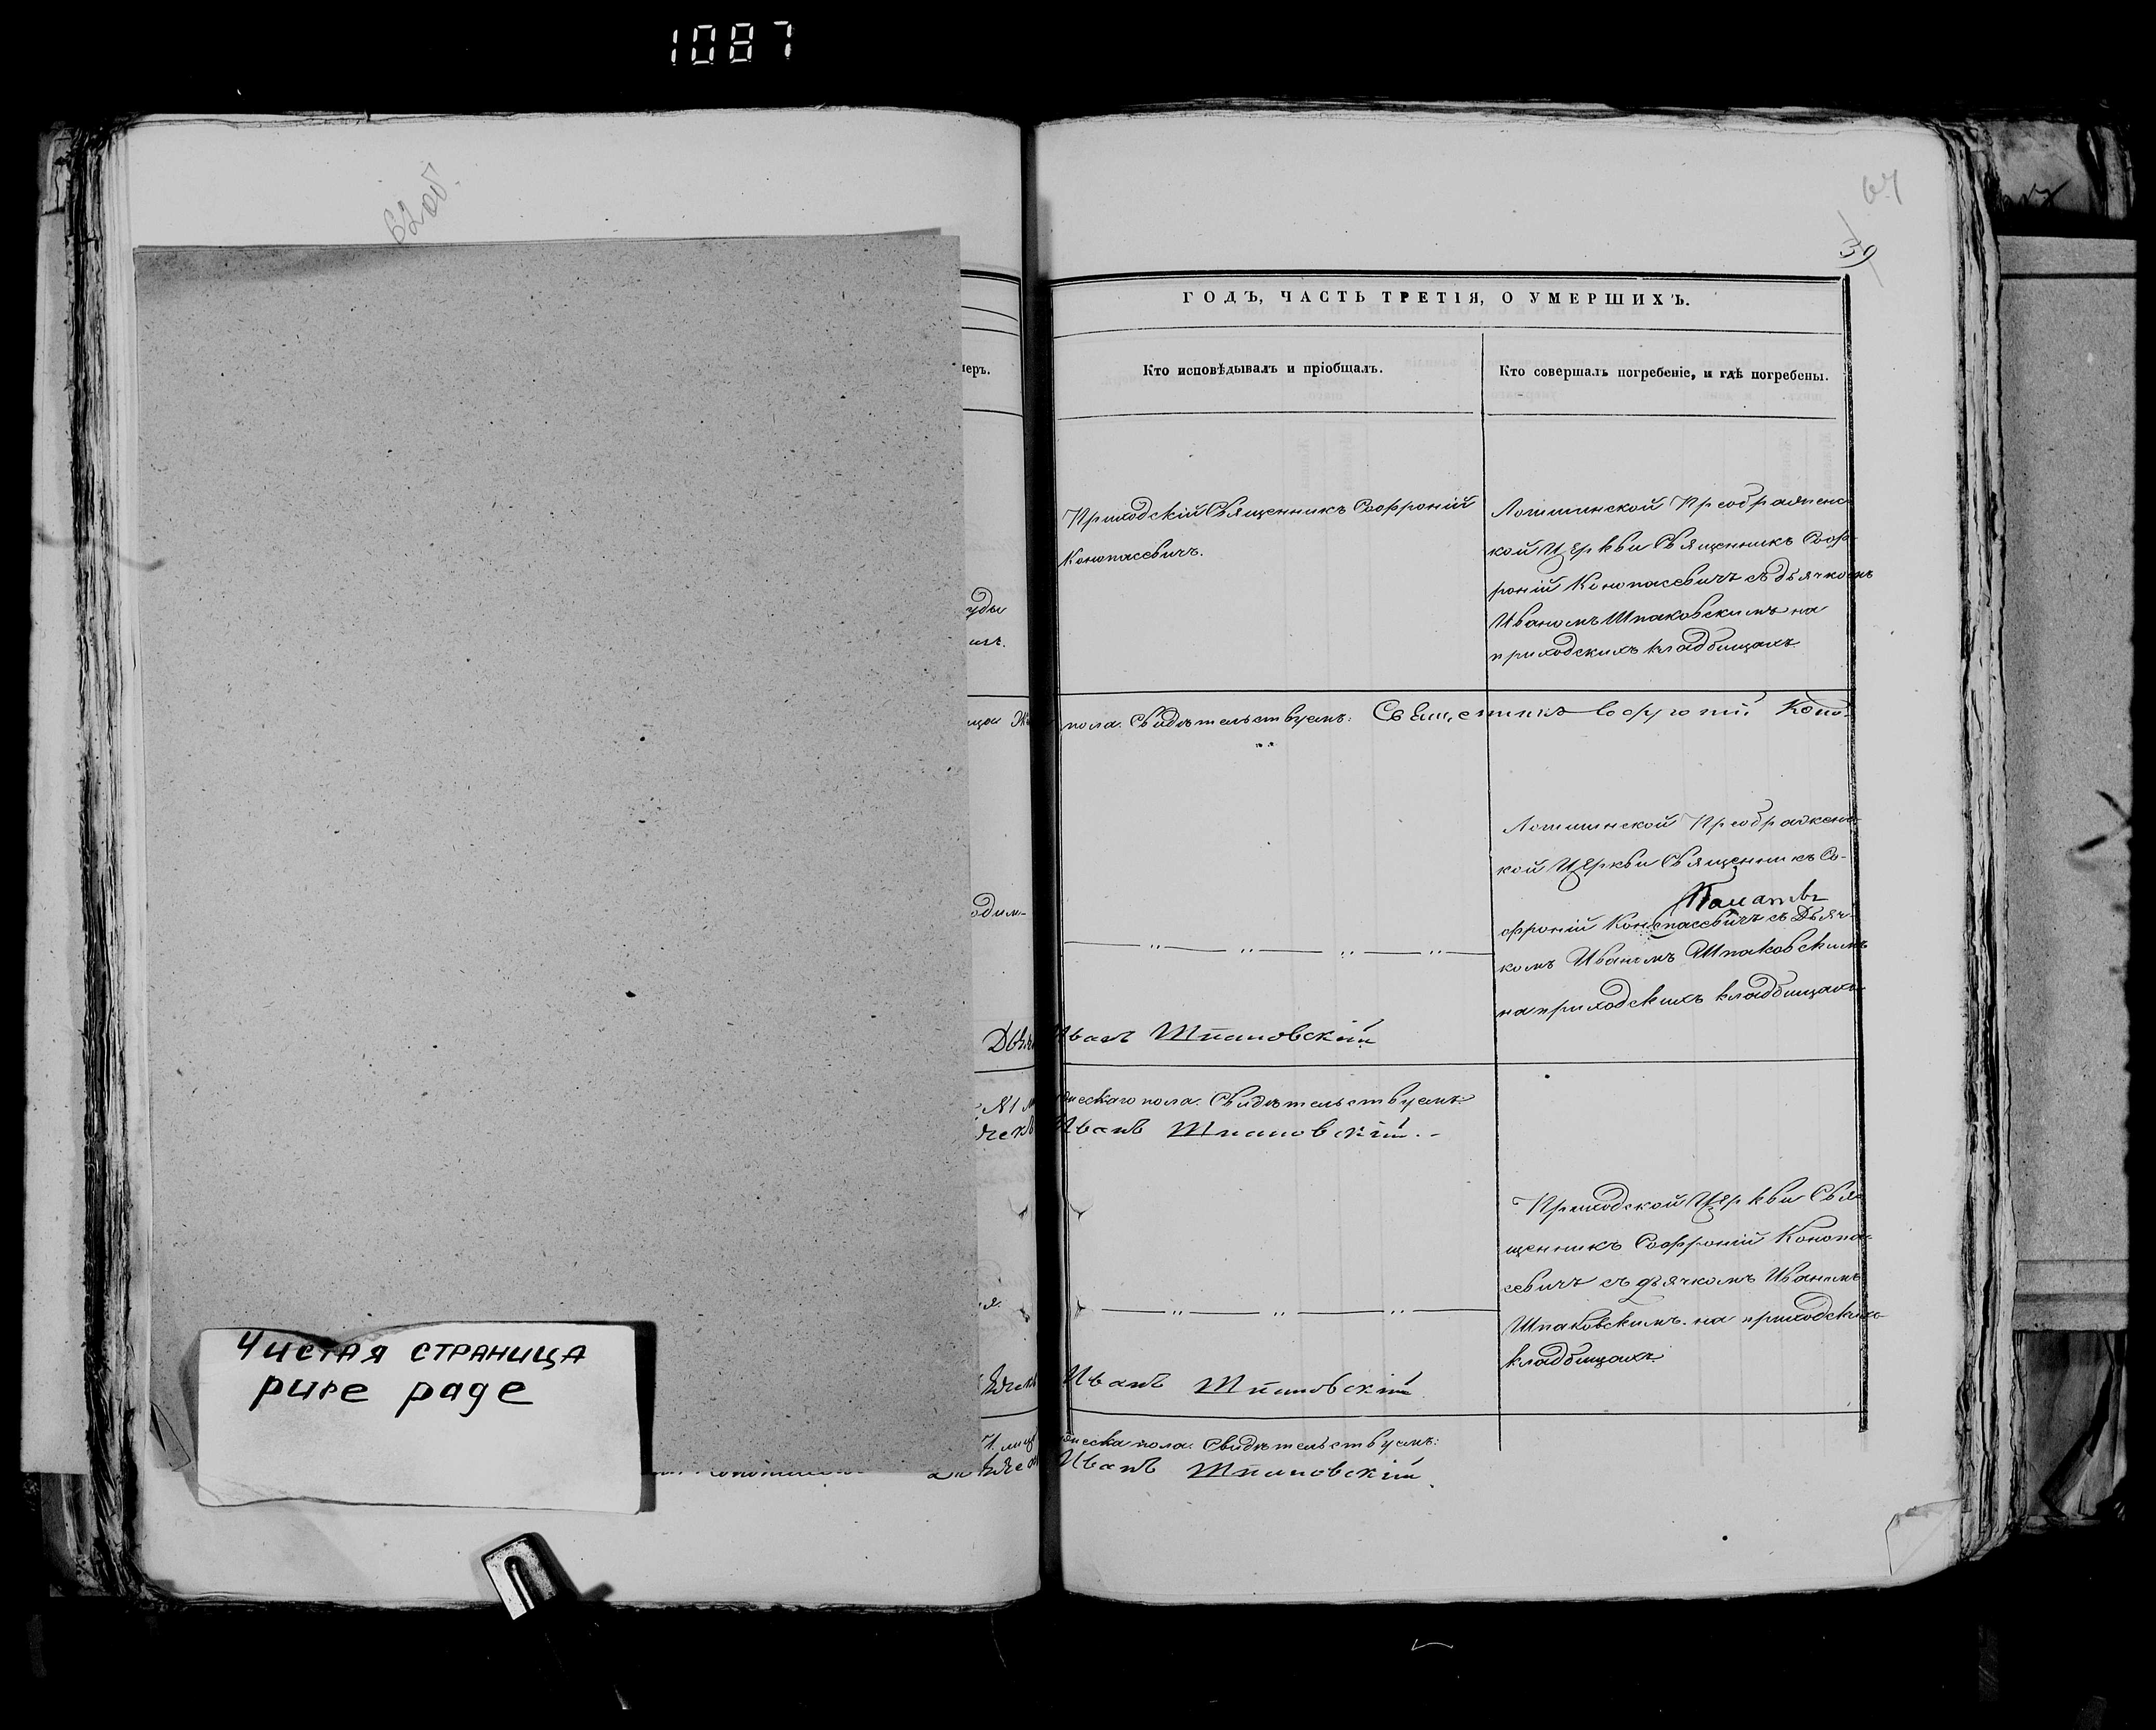 1087
62 об.
67
39
ГОДЪ, ЧАСТЬ ТРЕТІЯ, О УМЕРШИХЪ.
меръ.
Кто исповѣдывалъ и пріобщалъ.
Кто совершалъ погребеніе, и гдѣ погребены.
Приходскій Священникъ Софроній
Конопасевичъ.
Лошинской Преображенс-
кой Церкви Священникъ Соф-
роній Конопасевичъ съ дьячкомъ
Иваномъ Шпаковскимъ на
приходскихъ кладбищахъ.
уды
пола. Свидѣтельствуемъ: Священникъ Софроній Коно-
Лошинской Преображенс-
кой Церкви Священникъ Со-
фроній Конопасевичъ съ Дьяч-
комъ Иваномъ Шпаковскимъ
на приходскихъ кладбищахъ
одим-
Иванъ Шпаковскій
№1
ческаго пола. Свидѣтельствуемъ:
Иванъ Шпаковскій.-
Приходской Церкви Свя-
щенникъ Софроній Конопа-
севичъ съ дьячкомъ Иваномъ
Шпаковскимъ. на приходскихъ
кладбищахъ.
Иванъ Шпаковскій
пола. Свидѣтельствуемъ:
Иванъ Шпаковскій.
Чистая страница
pure page